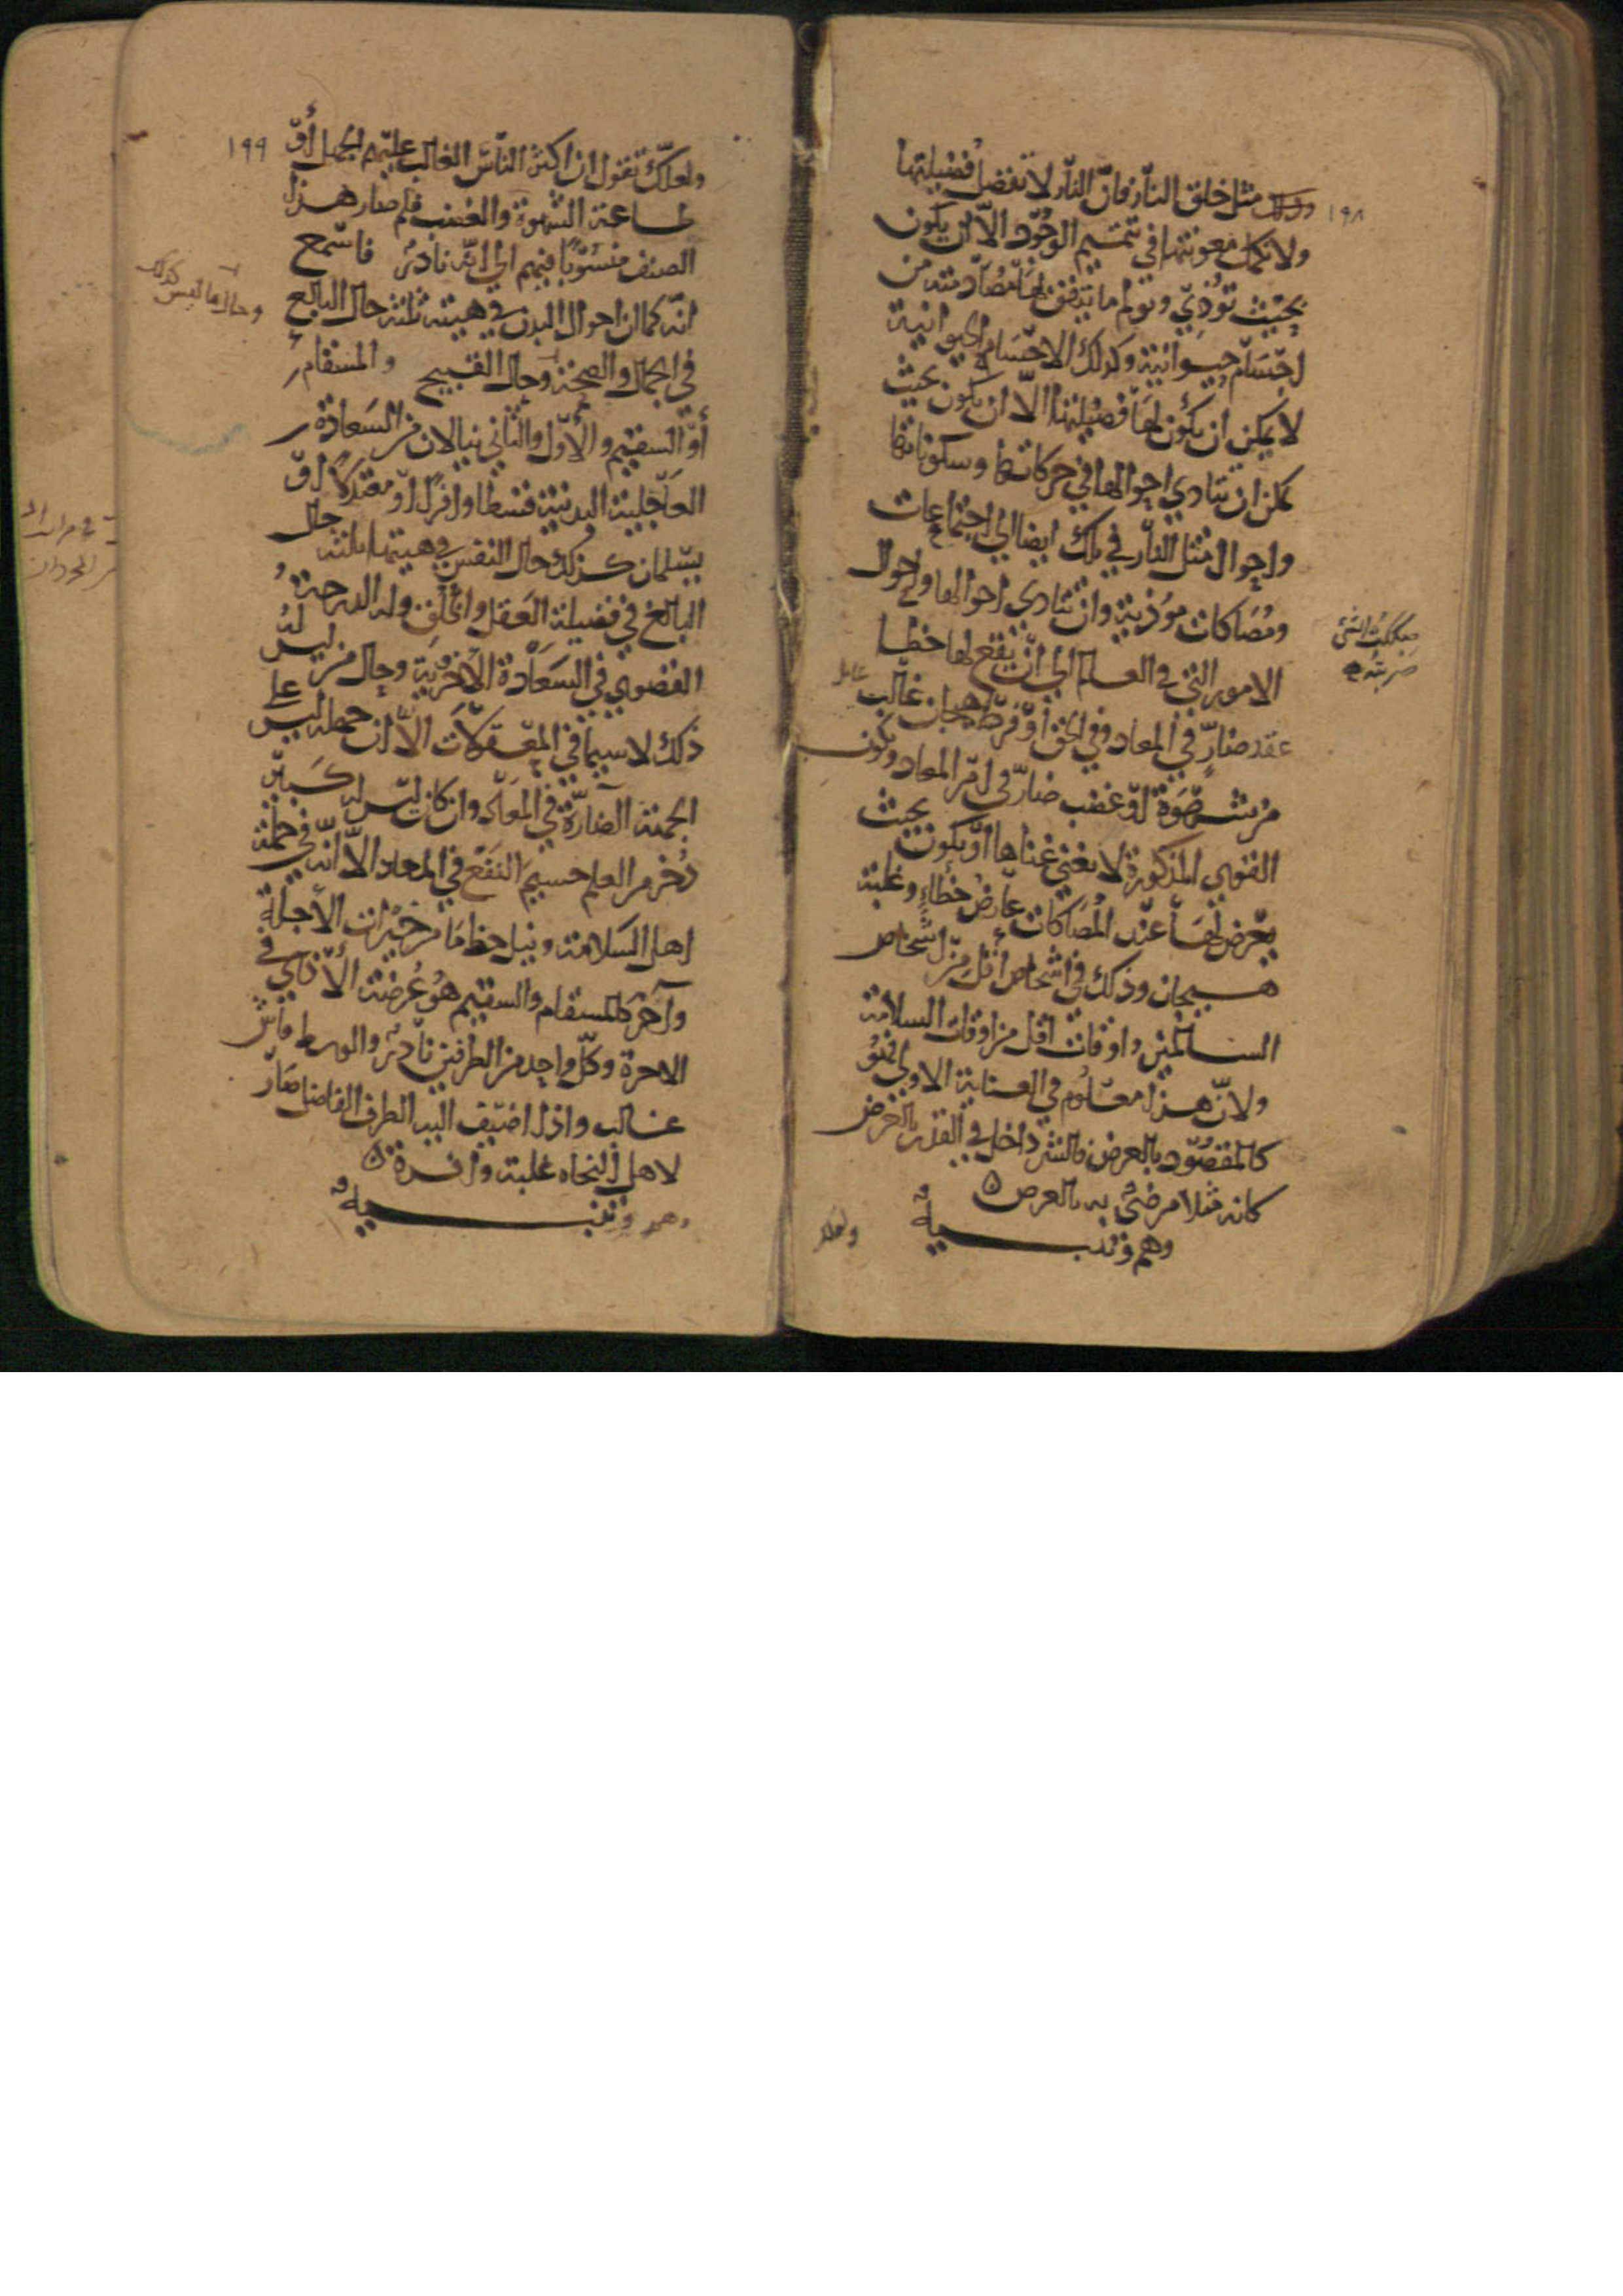 ١٩٨
وذلك مثل خلق النار فان النار لا تفضل فضيلتها
ولا تكمل معونتها في تتميم الوجود الا ان يكون
بحيث تؤذي وتولم ما يتفق لها مصادمته من
اجسام حيوانية وكذلك الاجسام الحيوانية
لا يمكن ان يكون لها فضيلتها الا ان يكون بحيث
يمكن ان تتادي احوالها في حركاتها وسكوناتها
واحوال مثل النار في تلك ايضا الي اجتماعات
ومصاكات موذية وان تتادي احوالها واحوال
الامور التي في العالم الي ان يقع لها خطا
عقد ضار في المعاد وفي الحق او فرط هيجان غالب
من شهوة او غضب ضار في امر المعاد وتكون
القوي المذكورة لا تغني غناها او يكون بحيث
يعرض لها عند المصاكات عارض خطاء وغلبة
هيجان وذلك في اشخاص اقل من اشخاص
السالمين واوقات اقل من اوقات السلامة
ولان هذا معلوم في العناية الاولي فهو
كالمقصود بالعرض فالشر داخل في القدر بالعرض
كانه مثلا مرضي به بالعرض ه
وهم وتنبيه
صككت الشئ
ضربته
عامل
ولعلك
١٩٩
ولعلك تقول ان اكثر الناس الغالب عليهم الجهل او
طاعة الشهوة والغضب فلم صار هذا
الصنف منسوبا فيهم الي انه نادر فاسمع
انه كما ان احوال البدن في هيئته ثلثة حال البالغ
في الجمال والصحة وحال القبيح والمسقام
او السقيم والاول والثاني ينالان من السعادة
العاجلية البدنية قسطا وافرا او معتدلا او
يسلمان كذلك حال النفس في هيئتها ثلثة حال
البالغ في فضيلة العقل والخلق وله الدرجة
القصوي في السعادة الاخروية وحال من ليس له
ذلك لا سيما في المعقولات الا ان جهله ليس علي
الجهة الضارة في المعاد وان كان ليس له كبير
ذخر من العلم جسيم النفع في المعاد الا انه في جملة
اهل السلامة ونيل حظ ما من خيرات الآجلة
وآخر كالمسقام والسقيم هو عرضة الاذي في
الاخرة وكل واحد من الطرفين نادر والوسط فاش
غالب واذا اضيف اليه الطرف الفاضل صار
لاهل النجاه غلبة وافرة ه
وهم وتنبيه
وحال ما ليس كذلك